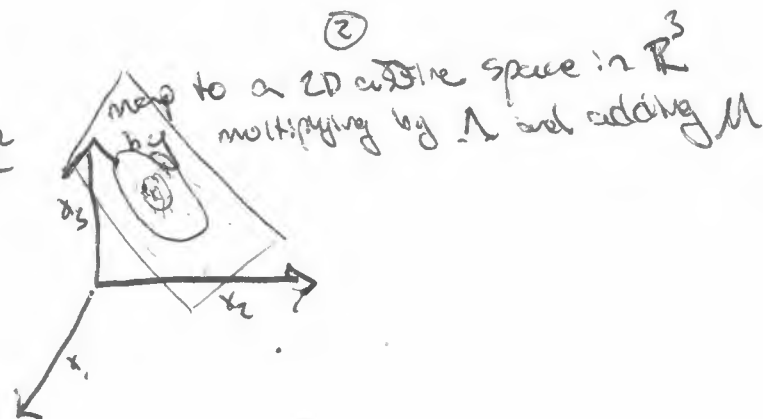 ②
map to a 2D affine space in ℝ³
by multiplying by Λ and adding μ
x₃
x₂
x₁